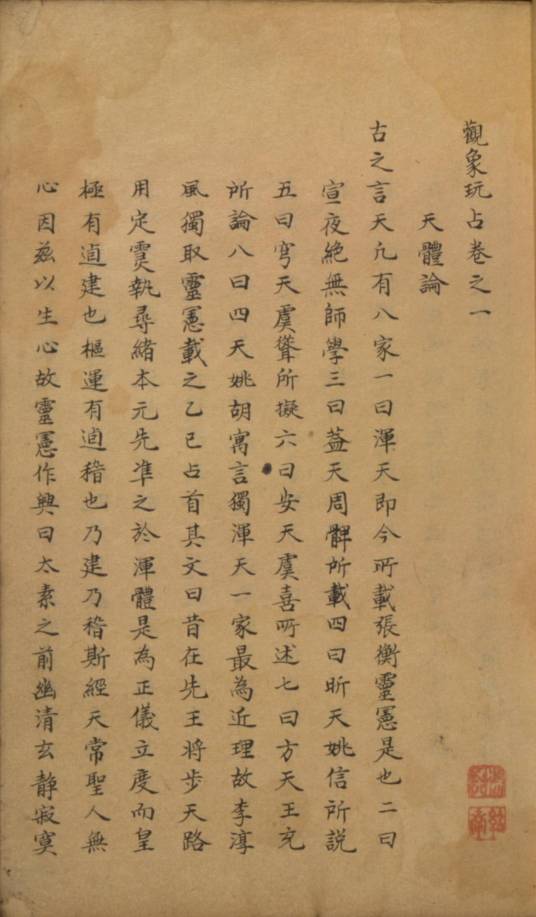 觀象玩占卷之一
天體論
古之言天凢有八家一曰渾天即今所載張衡靈憲是也二曰
宣夜絶無師學三曰葢天周髀所載四曰昕天姚信所説
五曰穹天虞聳所擬六曰安天虞喜所述七曰方天王充
所論八曰四天姚胡寓言獨渾天一家最為近理故李淳
風獨取靈憲載之乙巳占首其文曰昔在先王将步天路
用定霊執尋緒本元先凖之於渾體是為正儀立度而皇
極有逌建也樞運有逌稽也乃建乃稽斯經天常聖人無
心因兹以生心故靈憲作興曰太素之前幽清玄静寂寞